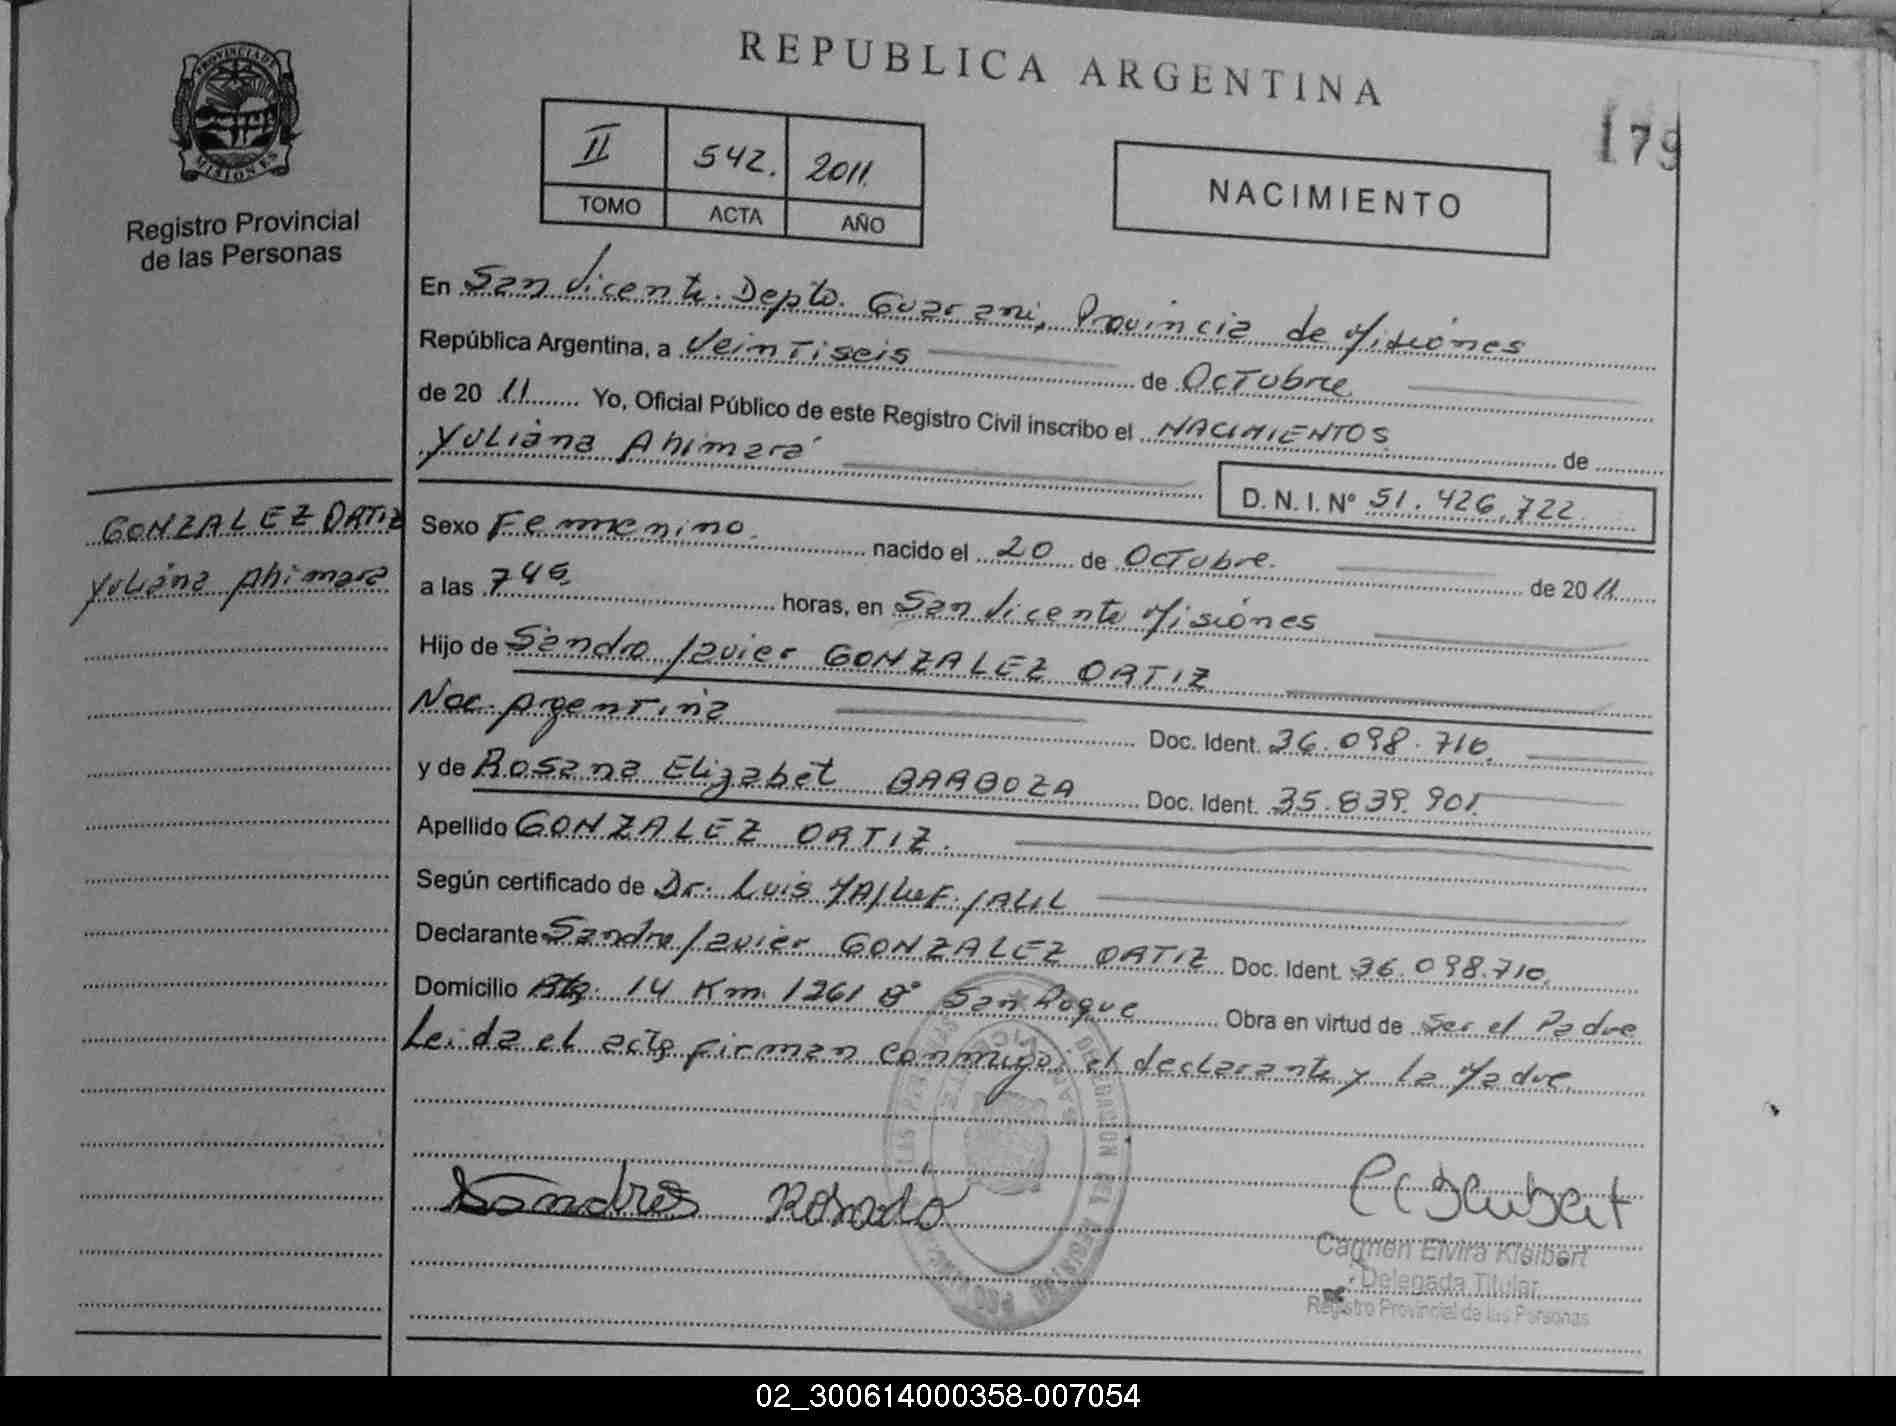 PROVINCIA DE
MISIONES
Registro Provincial
de las Personas
GONZALEZ ORTIZ
Yuliana Ahimara
REPUBLICA ARGENTINA
179
II 542. 2011.
TOMO ACTA AÑO
NACIMIENTO
En San Vicente. Depto. Guarani, Provincia de Misiónes
República Argentina, a Veintiseis de Octubre
de 20 11 Yo, Oficial Público de este Registro Civil inscribo el NACIMIENTOS de
Yuliana Ahimara
D. N. I. Nº 51.426.722
Sexo Femenino. nacido el 20 de Octubre. de 20 11
a las 7 horas, en San Vicente Misiónes
Hijo de Sandro Javier GONZALEZ ORTIZ
Nac. Argentina Doc. Ident. 36.098.710.
y de Rosana Elizabet BARBOZA Doc. Ident. 35.839.901
Apellido GONZALEZ ORTIZ.
Según certificado de Dr. Luis
Declarante Sandro Javier GONZALEZ ORTIZ Doc. Ident. 36.098.710.
Domicilio 14 Km. 1261 Bº San Roque Obra en virtud de Ser el Padre
Leida el acta firman conmigo; el declarante y la Madre.
Carmen Elvira Kleibert
Delegada Titular
Registro Provincial de las Personas
02_300614000358-007054